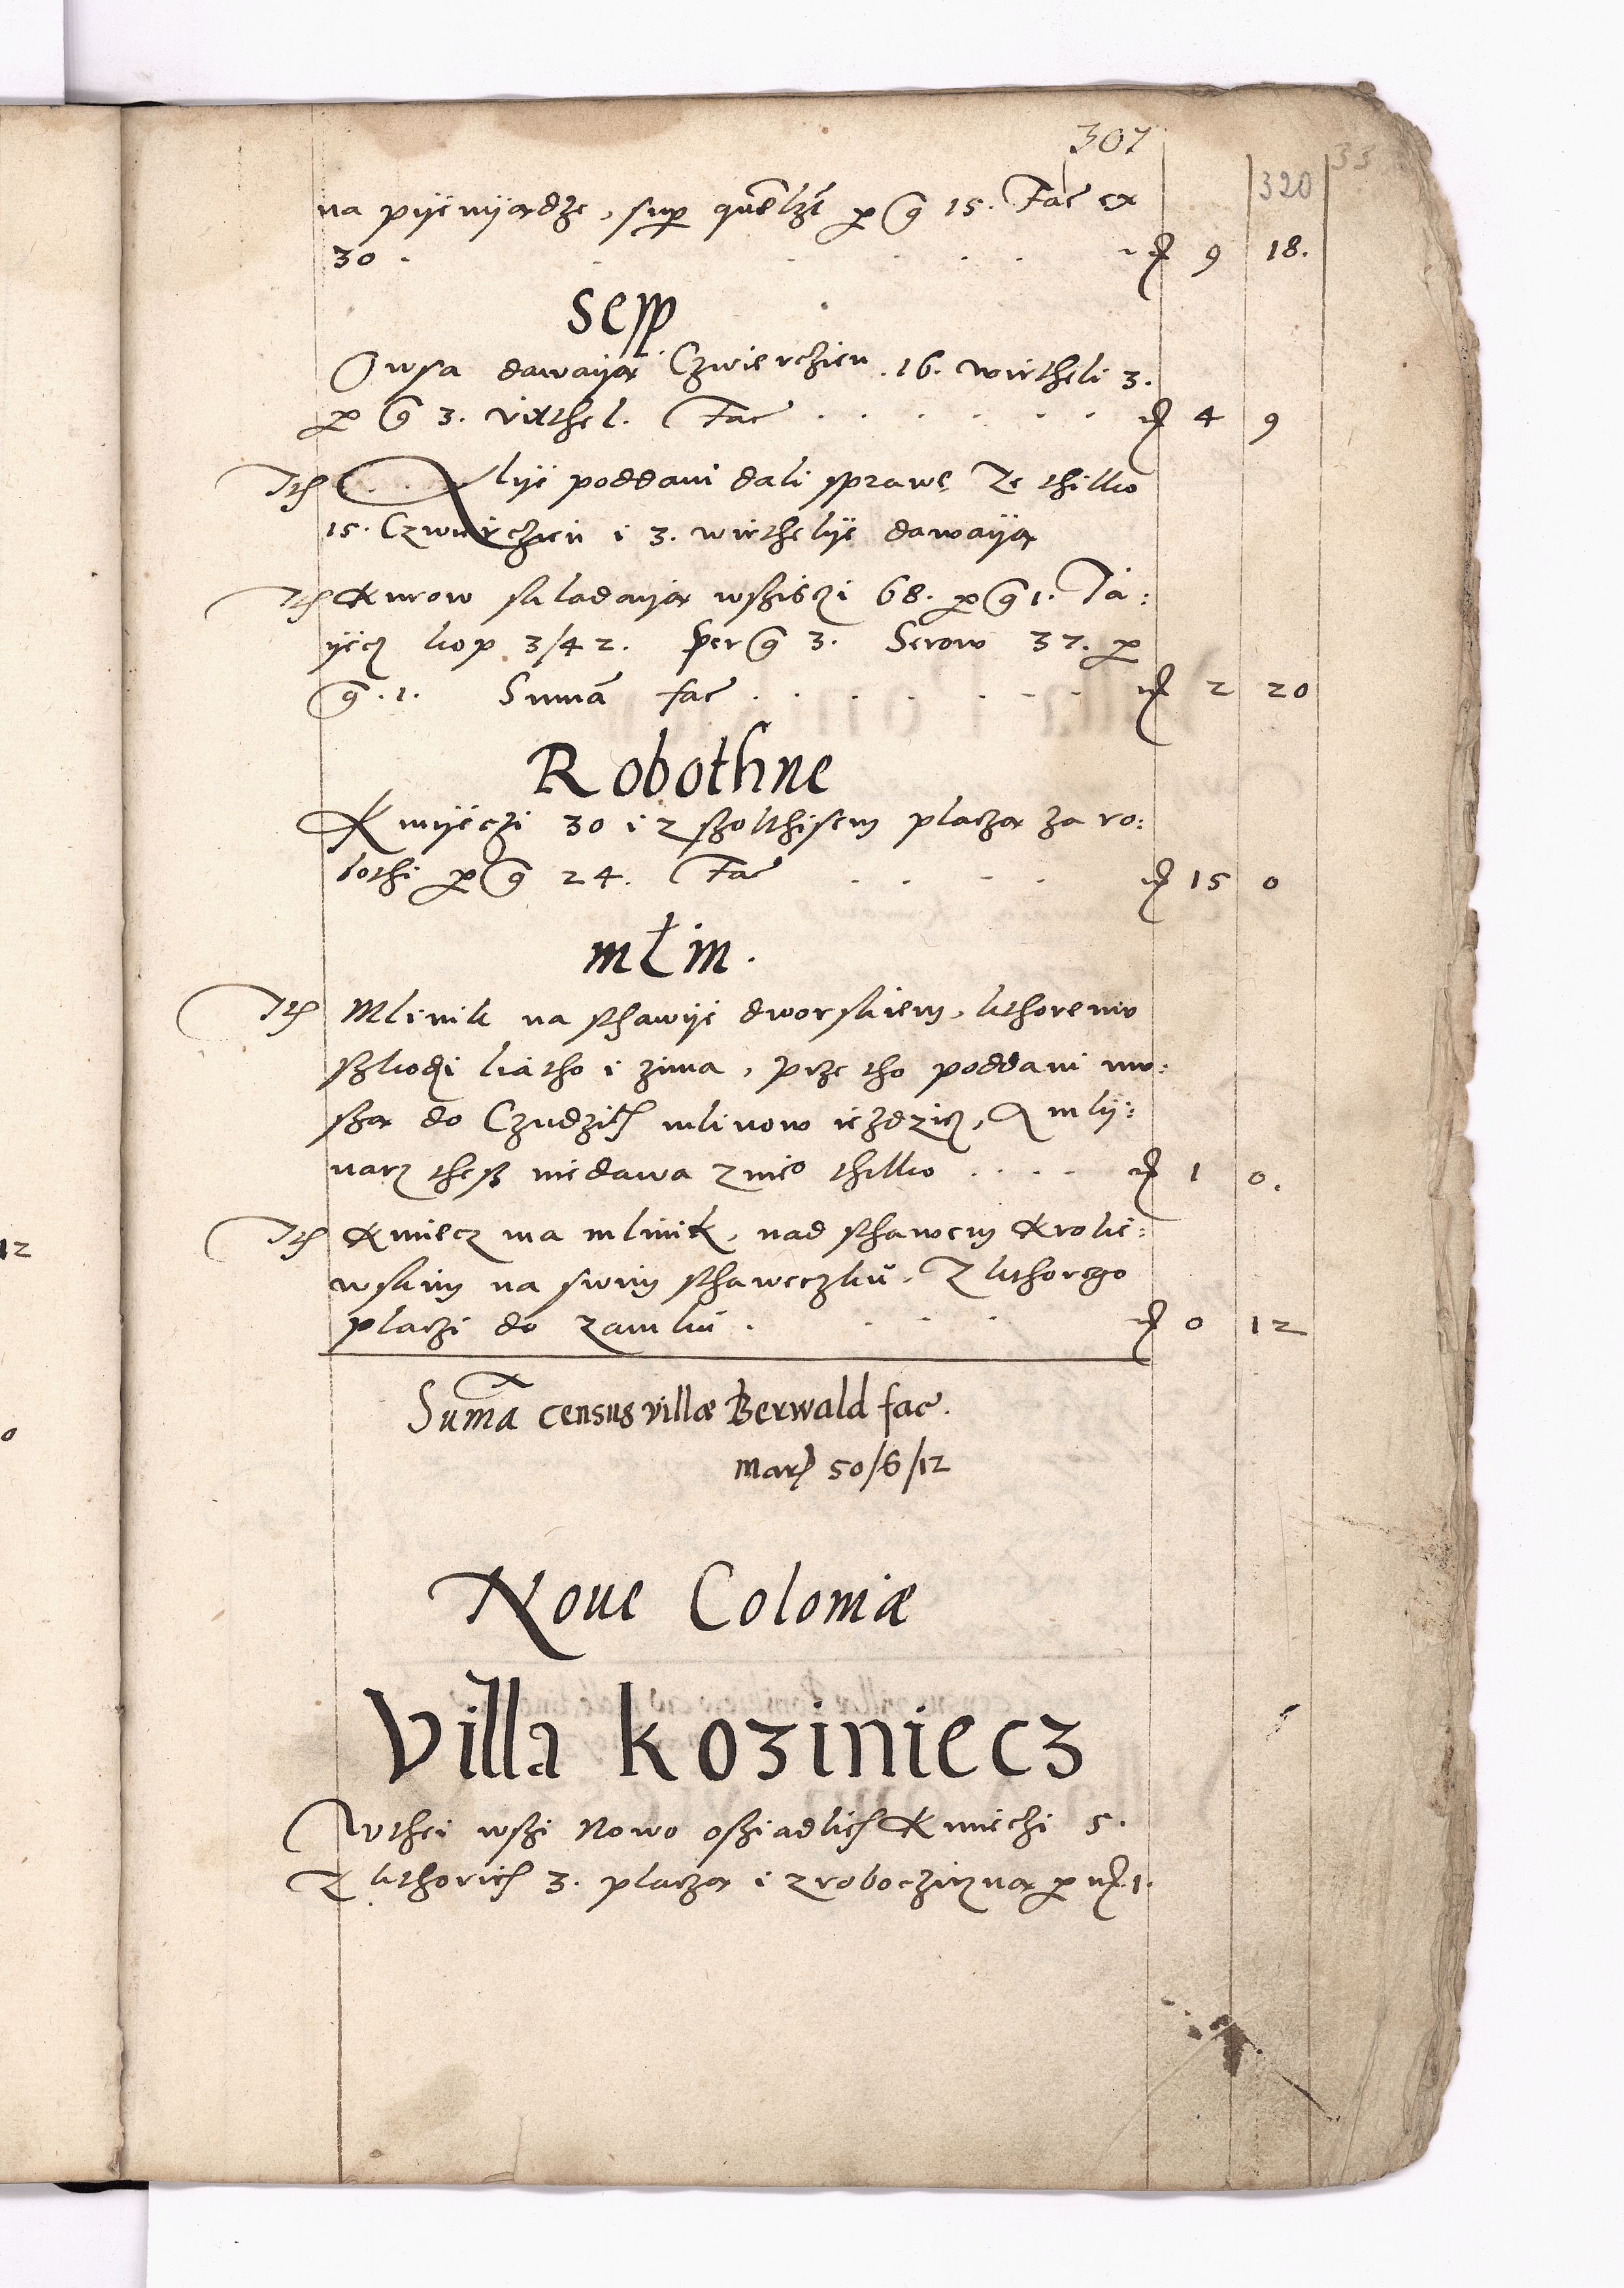 307
320
33
na pijenijądze, sup quelzt p g 15. Fac ex
30 . . . . . . . m 9 18.
Sepp
Owsa dawaiją Czwierczien .16. wirtheli 3.
p g 3. virthel. Fac . . . . . . m 4 9
Ith Alije poddani dali sprawę Ze thilko
15. Czwierczien i 3. wirthelije dawaiją
Ith Kurow skladaiją wszisczi 68. p g 1. Ja:
ijecz kop 3/42. per g 3. Serow 37. p
g .1. Suma fac . . . . . . m 2 20
Robothne
Kmijeczi 30 i z szolthisem placzą za ro:
bothi p g 24. Fac . . . . m 15 0
młin.
Ith Mlinik na sthawije dworskiem, kthoremu
szkodzi liatho i zima, prze tho poddani mu:
szą do Czudzich mlinow iezdzicz, A mlij:
narz thesz niedawa z nieo thilko . . . . m 1 0.
Ith Kmiecz ma mlinik, nad sthawem Krolie:
wskim na swim sthaweczku. Z kthorego
placzi do zamku . . . . m 0 12
Suma census villæ Berwald fac.
marz 50/6/12
Noue Coloniæ
Villa koziniecz
Wthei wszi Nowo osziadlich Kmiechi 5.
Z kthorich 3. placzą i z roboczizną p m 1.
12
0